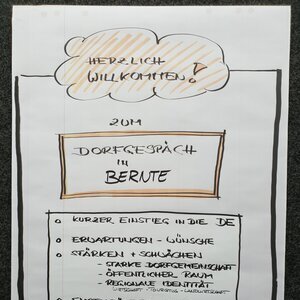 HERZLICH
WILLKOMMEN!
ZUM
DORFGESPÄCH
in
BERNTE
o KURZER EINSTIEG IN DIE DE
o ERWARTUNGEN - WÜNSCHE
o STÄRKEN + SCHWÄCHEN
- STARKE DORFGEMEINSCHAFT
- ÖFFENTLICHER RAUM
- REGIONALE IDENTITÄT
WIRTSCHAFT - TOURISMUS - LANDWIRTSCHAFT